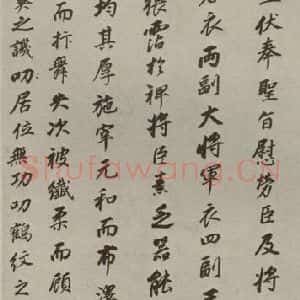 伏奉聖旨慰勞臣及將
衣兩副大將軍衣四副
猥霑於裨將臣素乏器能
均其厚施宰元和而布澤
而抃舞失次被纖柔而顧
之譏叨居位無功叨鶴紋之
Shufawang.CN